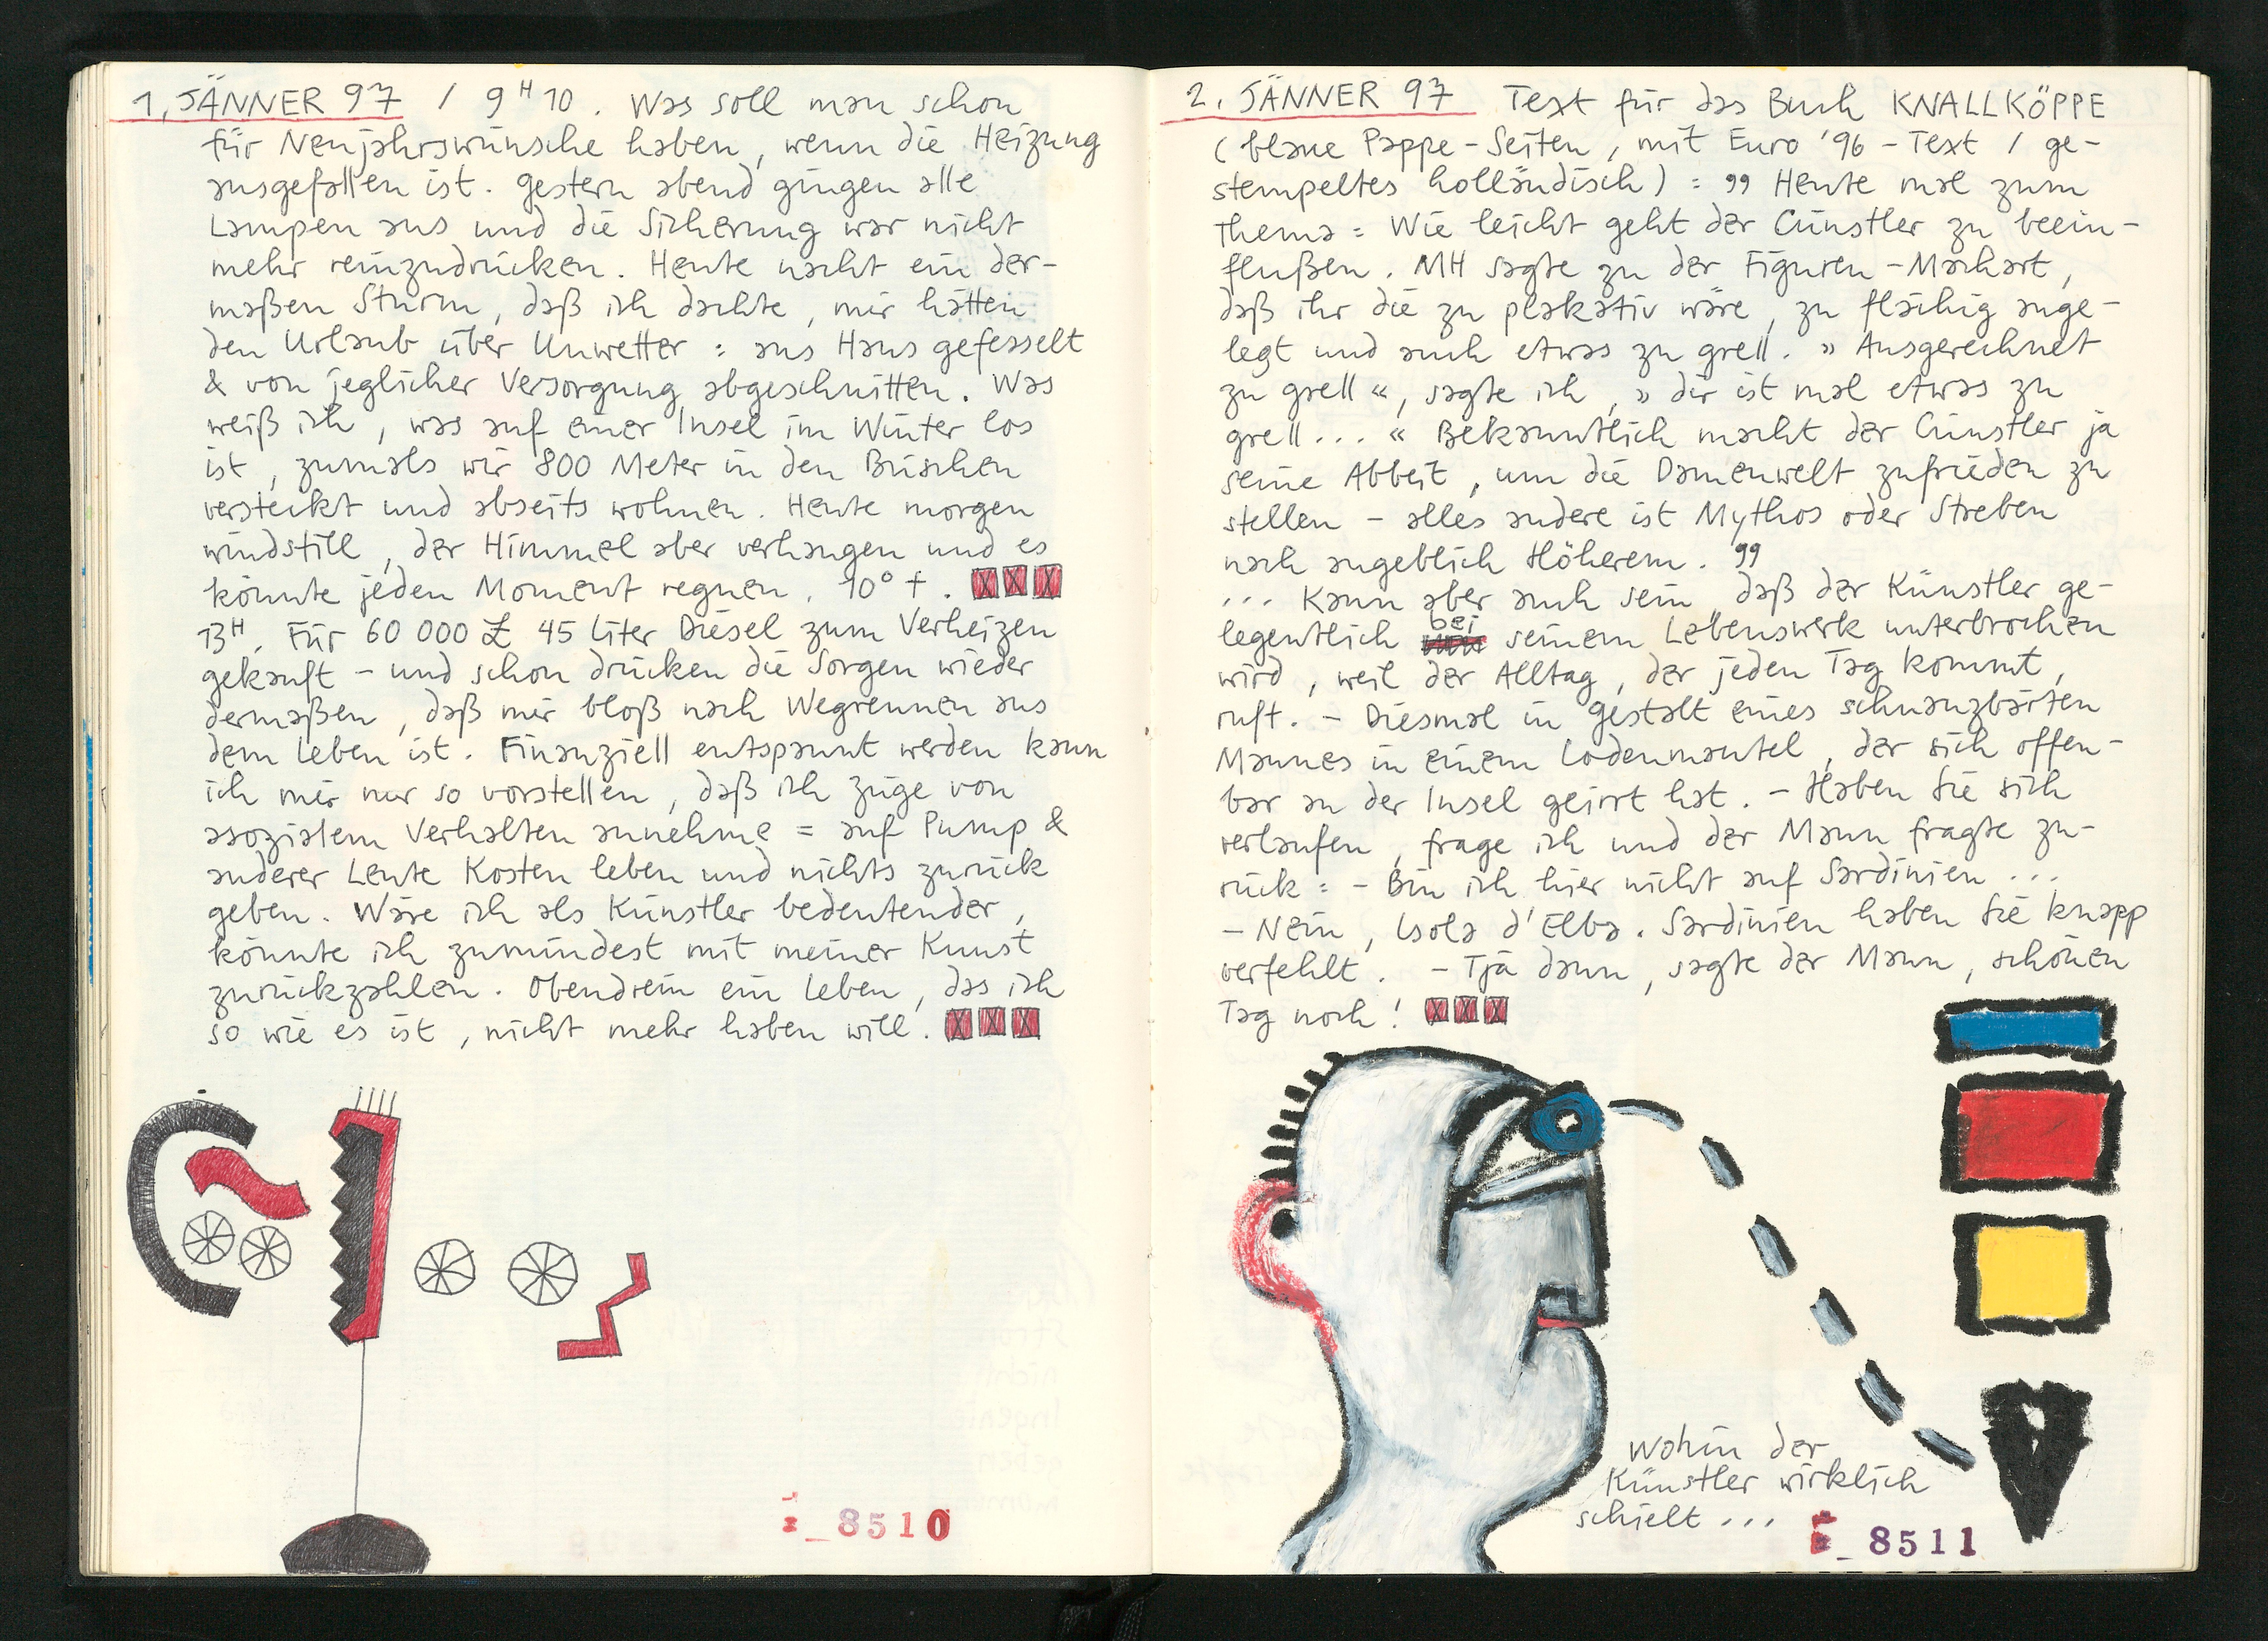 1. JÄNNER 97 / 9 H 10. Was soll man schon
für Neujahrswünsche haben, wenn die Heizung
ausgefallen ist. Gestern abend gingen alle
Lampen aus und die Sicherung war nicht
mehr reinzudrücken. Heute nacht ein der-
maßen Sturm, daß ich dachte, mir hätten
den Urlaub über Unwetter: ans Haus gefesselt
& von jeglicher Versorgung abgeschnitten. Was
weiß ich, was auf einer Insel im Winter los
ist, zumals wir 800 Meter in den Büschen
versteckt und abseits wohnen. Heute morgen
windstill, der Himmel aber verhangen und es
könnte jeden Moment regnen. 10° +.
13H. Für 60 000 £ 45 Liter Diesel zum Verheizen
gekauft - und schon drücken die Sorgen wieder
dermaßen, daß mir bloß nach Wegrennen aus
dem Leben ist. Finanziell entspannt werden kann
ich mir nur so vorstellen, daß ich Züge von
asozialem Verhalten annehme = auf Pump &
anderer Leute Kosten leben und nichts zurück
geben. Wäre ich als Künstler bedeutender,
könnte ich zumindest mit meiner Kunst
zurückzahlen. Obendrein ein Leben, das ich
so wie es ist, nicht mehr haben will.
8510
2. JÄNNER 97 Text für das Buch KNALLKÖPPE
(blaue Pappe-Seiten, mit Euro '96 - Text / ge-
stempeltes holländisch) : „ Heute mal zum
Thema: Wie leicht geht der Cünstler zu beein-
flußen. MH sagte zu der Figuren-Machart,
daß ihr die zu plakativ wäre, zu flächig ange-
legt und auch etwas zu grell. » Ausgerechnet
zu grell «, sagte ich, » dir ist mal etwas zu
grell... « Bekanntlich macht der Cünstler ja
seine Abbeit, um die Damenwelt zufrieden zu
stellen - alles andere ist Mythos oder Streben
nach angeblich Höherem. "
... Kann aber auch sein, daß der Künstler ge-
legentlich bei seinem Lebenswerk unterbrochen
wird, weil der Alltag, der jeden Tag kommt,
ruft. - Diesmal in Gestalt eines schnauzbärten
Mannes in einem Lodenmantel, der sich offen-
bar an der Insel geirrt hat. - Haben Sie sich
verlaufen, frage ich und der Mann fragte zu-
rück: - Bin ich hier nicht auf Sardinien ...
- Nein, Isola d'Elba. Sardinien haben Sie knapp
verfehlt. - Tja dann, sagte der Mann, schönen
Tag noch!
Wohin der
Künstler wirklich
schielt ...
8511